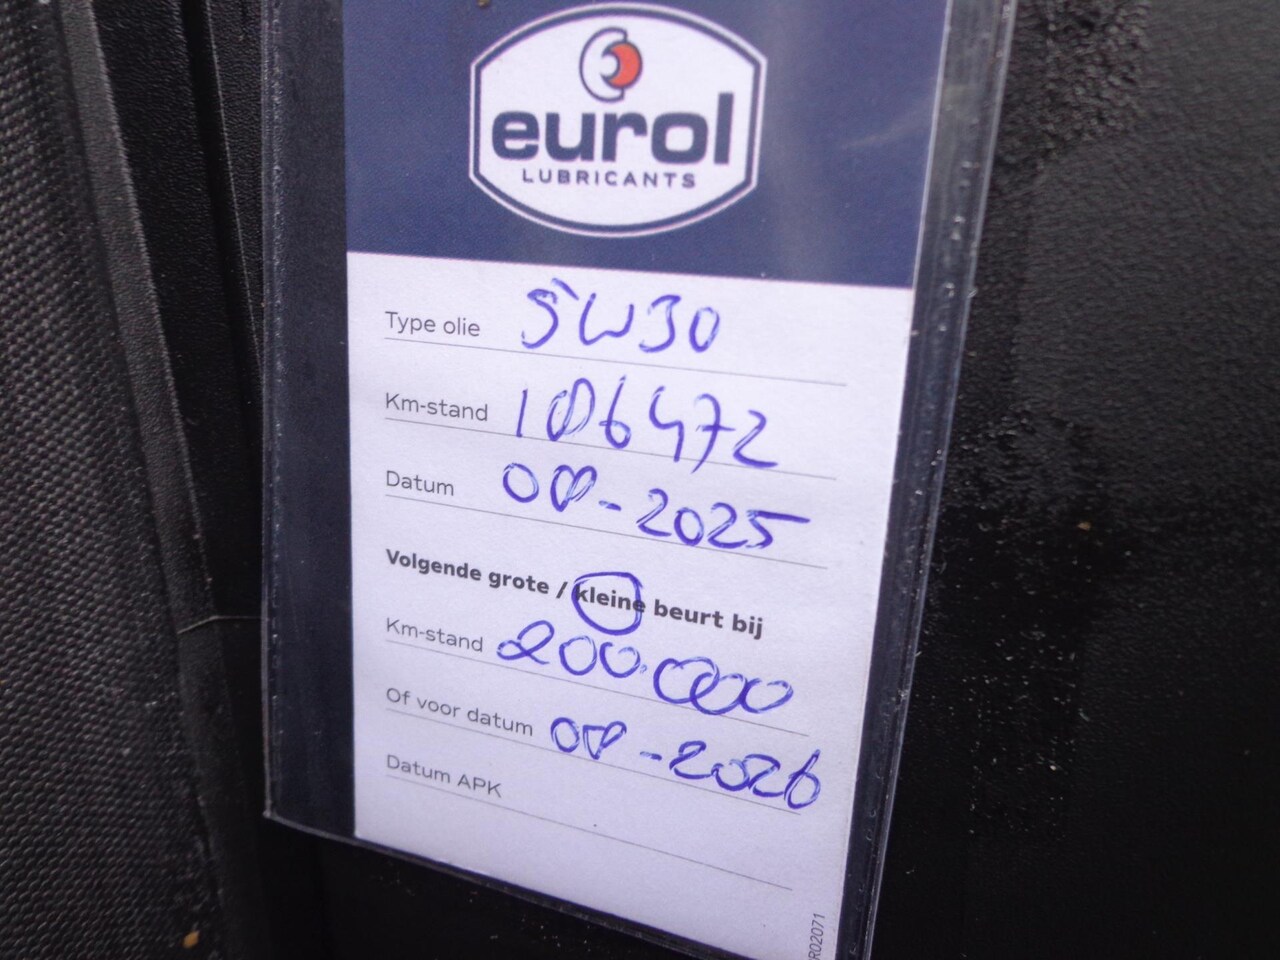 eurol
LUBRICANTS
Type olie 5W30
Km-stand 186472
Datum 08-2025
Volgende grote / kleine beurt bij
Km-stand 200.000
Of voor datum 08-2026
Datum APK